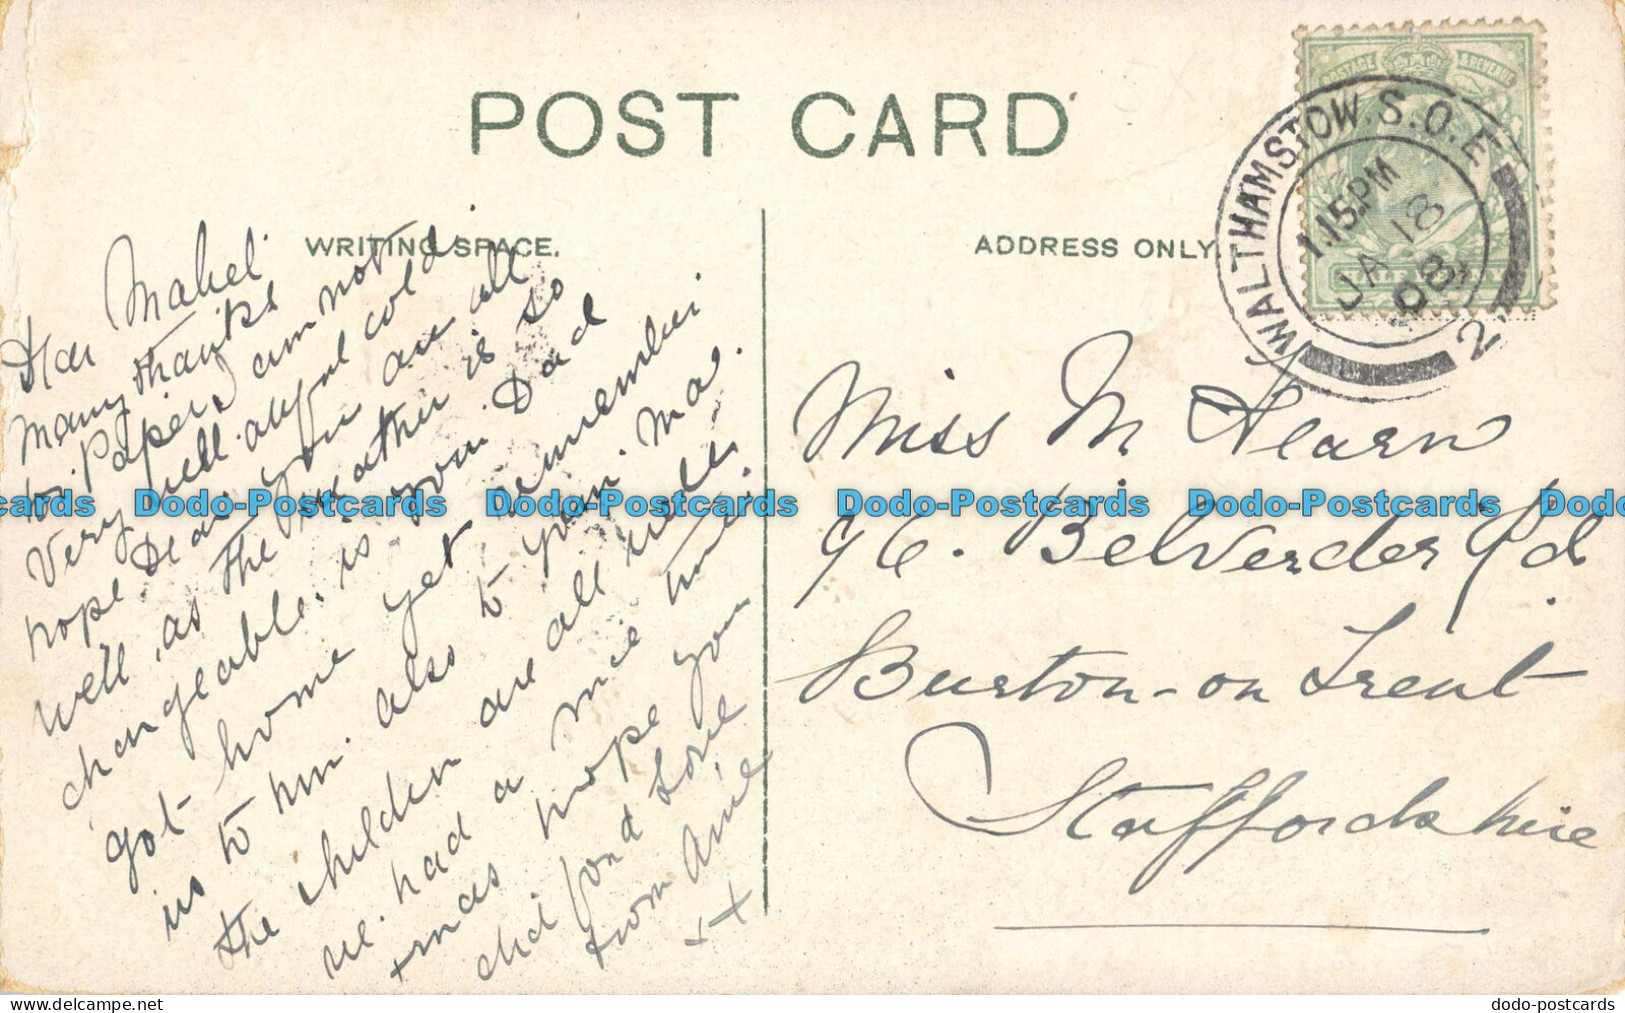 POST CARD
WRITING SPACE.
ADDRESS ONLY.
POSTAGE & REVENUE
WALTHAMSTOW. S.O. E.
1.15 PM
JA 18
08
2
Dear Mabel
Many thanks
for Papers, am not
Very well. awful cold
hope Dear you are all
well, as the weather is so
changeable. is your Dad
got home yet remember
us to him also to your Ma.
the children are all well
we had a nice time
xmas hope you
did fond Love
from Annie
x x
Miss M Hearn
96. Belverder Rd
Burton-on Trent
Staffordshire
Dodo-Postcards Dodo-Postcards Dodo-Postcards Dodo-Postcards Dodo-Postcards
delcampe.net
dodo-postcards